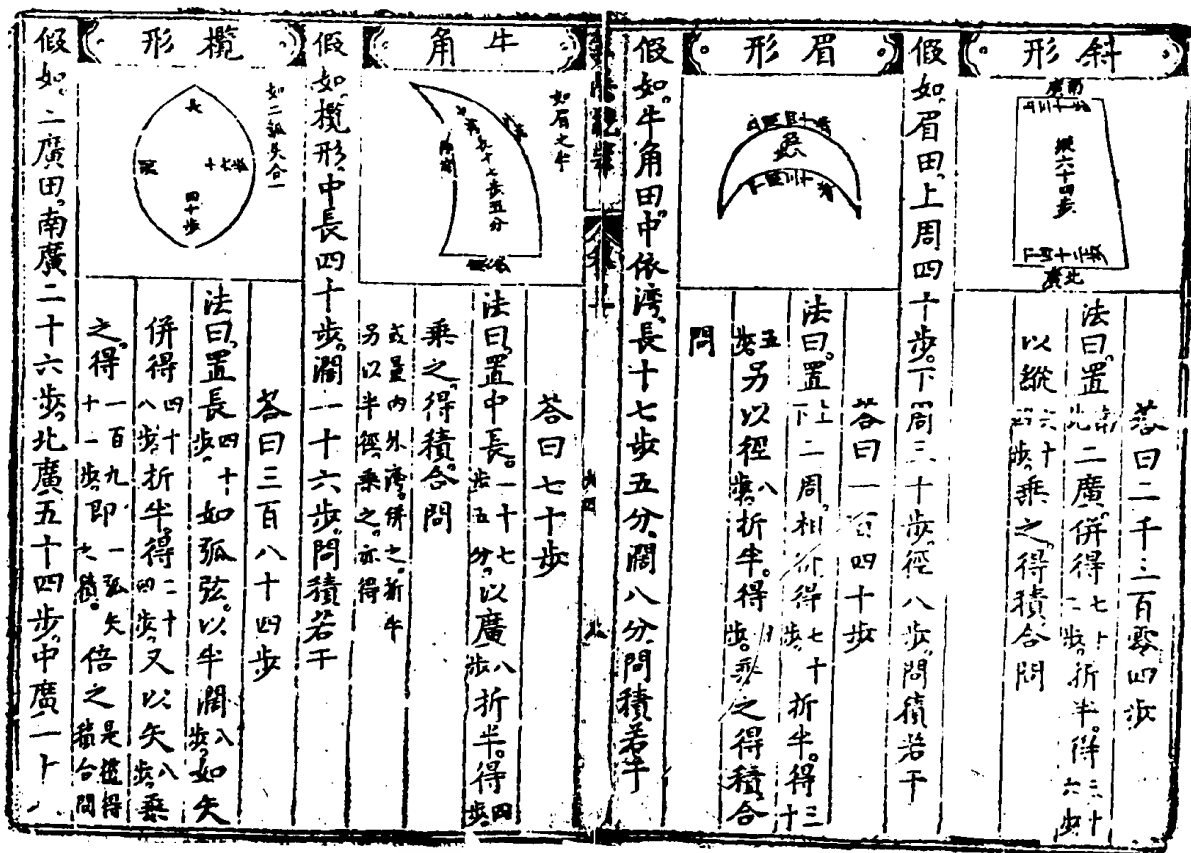 斜形
南廣
縱六十四步
北廣
荅曰二千三百零四步
法曰置南北二廣併得七十二步折半得三十六步
以縱六十四步乘之得積合問
假如眉田上周四十步下周三十步徑八步問積若干
眉形
荅曰一百四十步
法曰置上下二周相併得七十步折半得三十
五步另以徑八步折半得四步乘之得積合
問
假如牛角田中依灣長十七步五分闊八分問積若干
牛角
如眉之半
中長一十七步五分
荅曰七十步
法曰置中長一十七步五分以廣八步折半得四步
乘之得積合問
或量內外灣併之折半
另以半徑乘之亦得
假如欖形中長四十步濶一十六步問積若干
欖形
如二弧矢合一
長
四十步
荅曰三百八十四步
法曰置長四十步如弧弦以半濶八步如矢
併得四十八步折半得二十四步又以矢八步乘
之得一百九十一步即一弧矢之積倍之是欖得積合問
假如二廣田南廣二十六步北廣五十四步中廣一十八